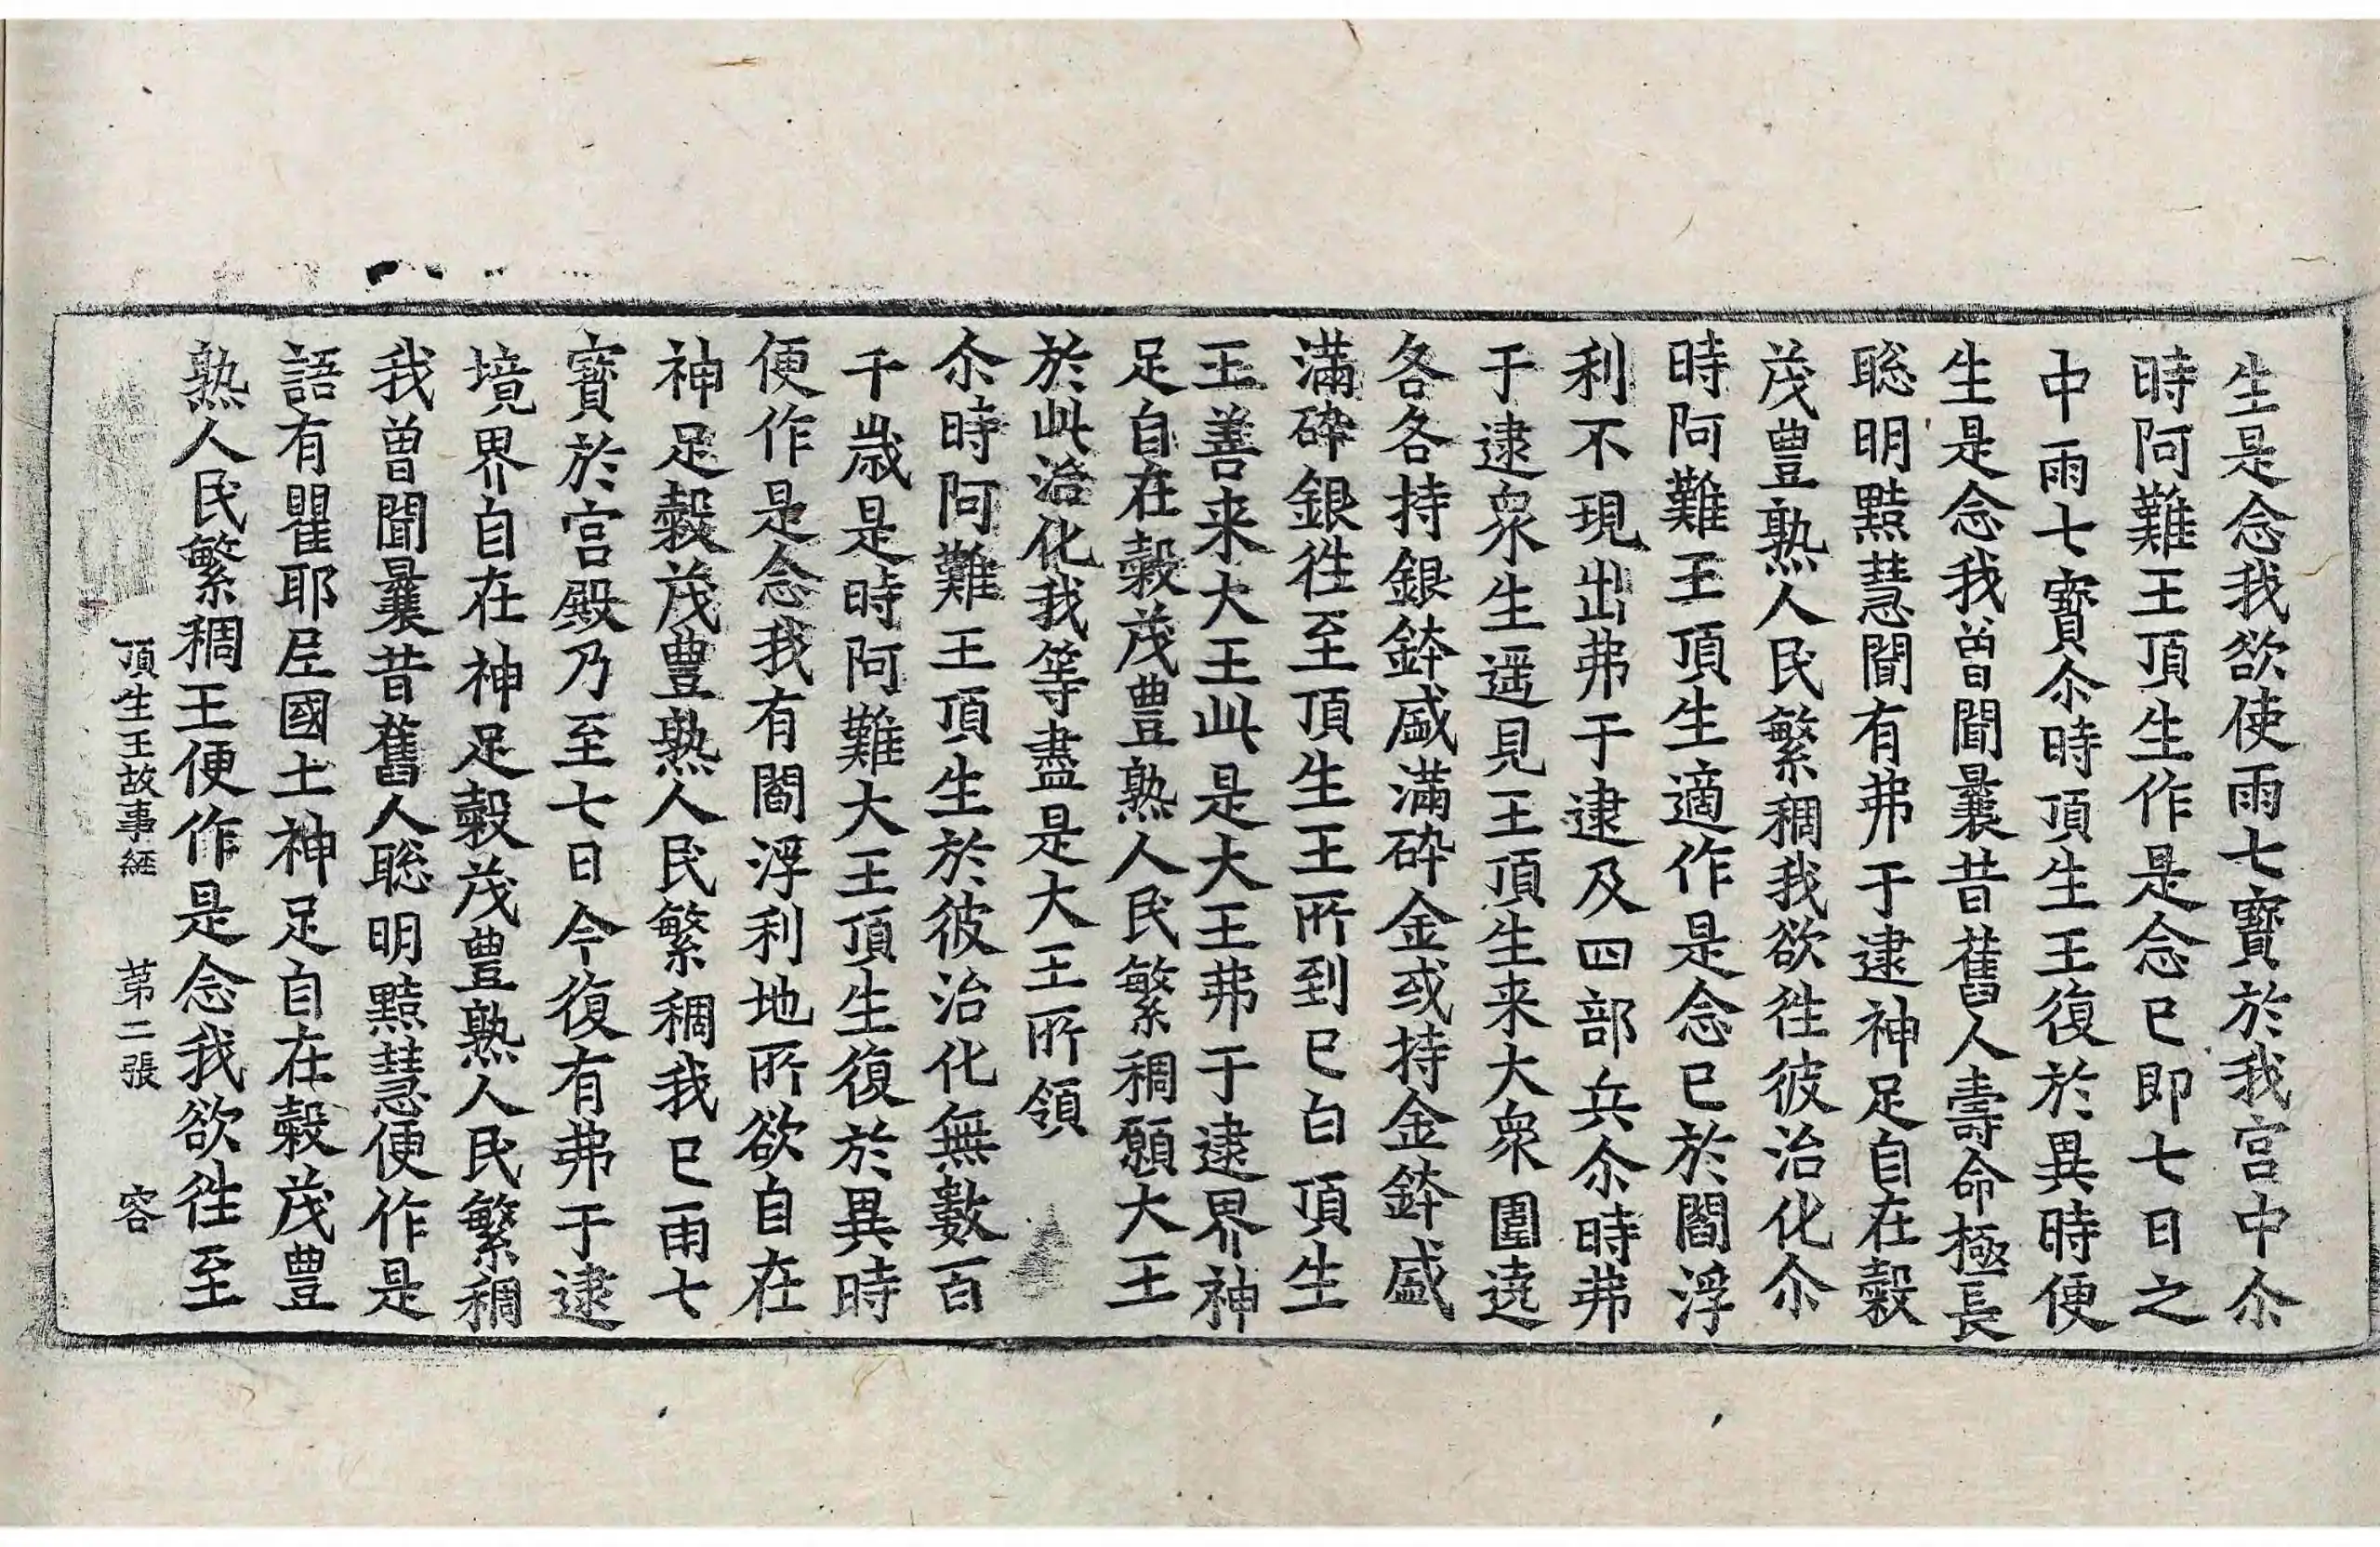 生是念我欲使雨七寳於我宮中尒
時阿難王頂生作是念已即七日之
中雨七寳尒時頂生王復於異時便
生是念我曾聞曩昔舊人壽命極長
聡明黠慧聞有弗于逮神足自在穀
茂豊熟人民繁稠我欲徃彼治化尒
時阿難王頂生適作是念已於閻浮
利不現出弗于逮及四部兵尒時弗
于逮衆生遥見王頂生来大衆圍遶
各各持銀鉢盛滿碎金或持金鉢盛
滿碎銀徃至頂生王所到已白頂生
王善来大王此是大王弗于逮界神
足自在穀茂豊熟人民繁稠願大王
於此治化我等盡是大王所領
尒時阿難王頂生於彼治化無數百
千歳是時阿難大王頂生復於異時
便作是念我有閻浮利地所欲自在
神足穀茂豊熟人民繁稠我已雨七
寳於宮殿乃至七日今復有弗于逮
境界自在神足穀茂豊熟人民繁稠
我曾聞曩昔舊人聡明黠慧便作是
語有瞿耶尼國土神足自在穀茂豊
熟人民繁稠王便作是念我欲徃至
頂生王故事經　第二張　容